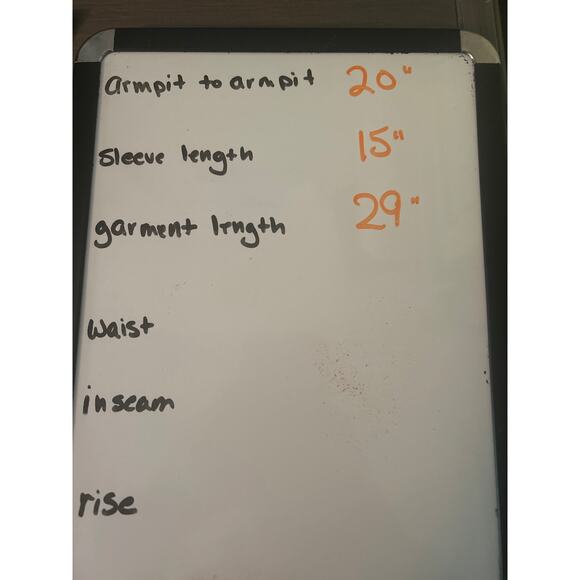 armpit to armpit 20"
Sleeve length 15"
garment length 29"
Waist
inseam
rise